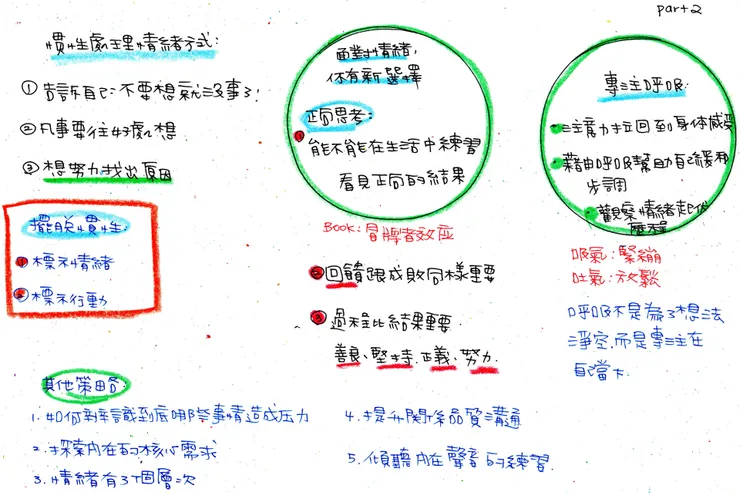 part 2
慣性處理情緒方式:
① 告訴自己不要想就沒事了!
② 凡事要往好處想
③ 想努力找出原因
擺脫慣性:
① 標示情緒
② 標示行動
面對情緒,
你有新選擇
正向思考:
① 能不能在生活中練習
看見正向的結果
Book: 冒牌者效应
② 回饋跟成敗同樣重要
③ 過程比結果重要
善良、堅持、正義、努力
專注呼吸:
注意力拉回到身体感受
藉由呼吸幫助自己緩和
步調
觀察情緒起伏
歷程
吸氣:緊繃
吐氣:放鬆
呼吸不是為了想法
淨空,而是專注在
自己當下
其他策略:
1. 如何辨識到底哪些事情造成压力
2. 探索內在的核心需求
3. 情緒有3個層次
4. 提升關係品質溝通
5. 傾聽內在聲音的練習